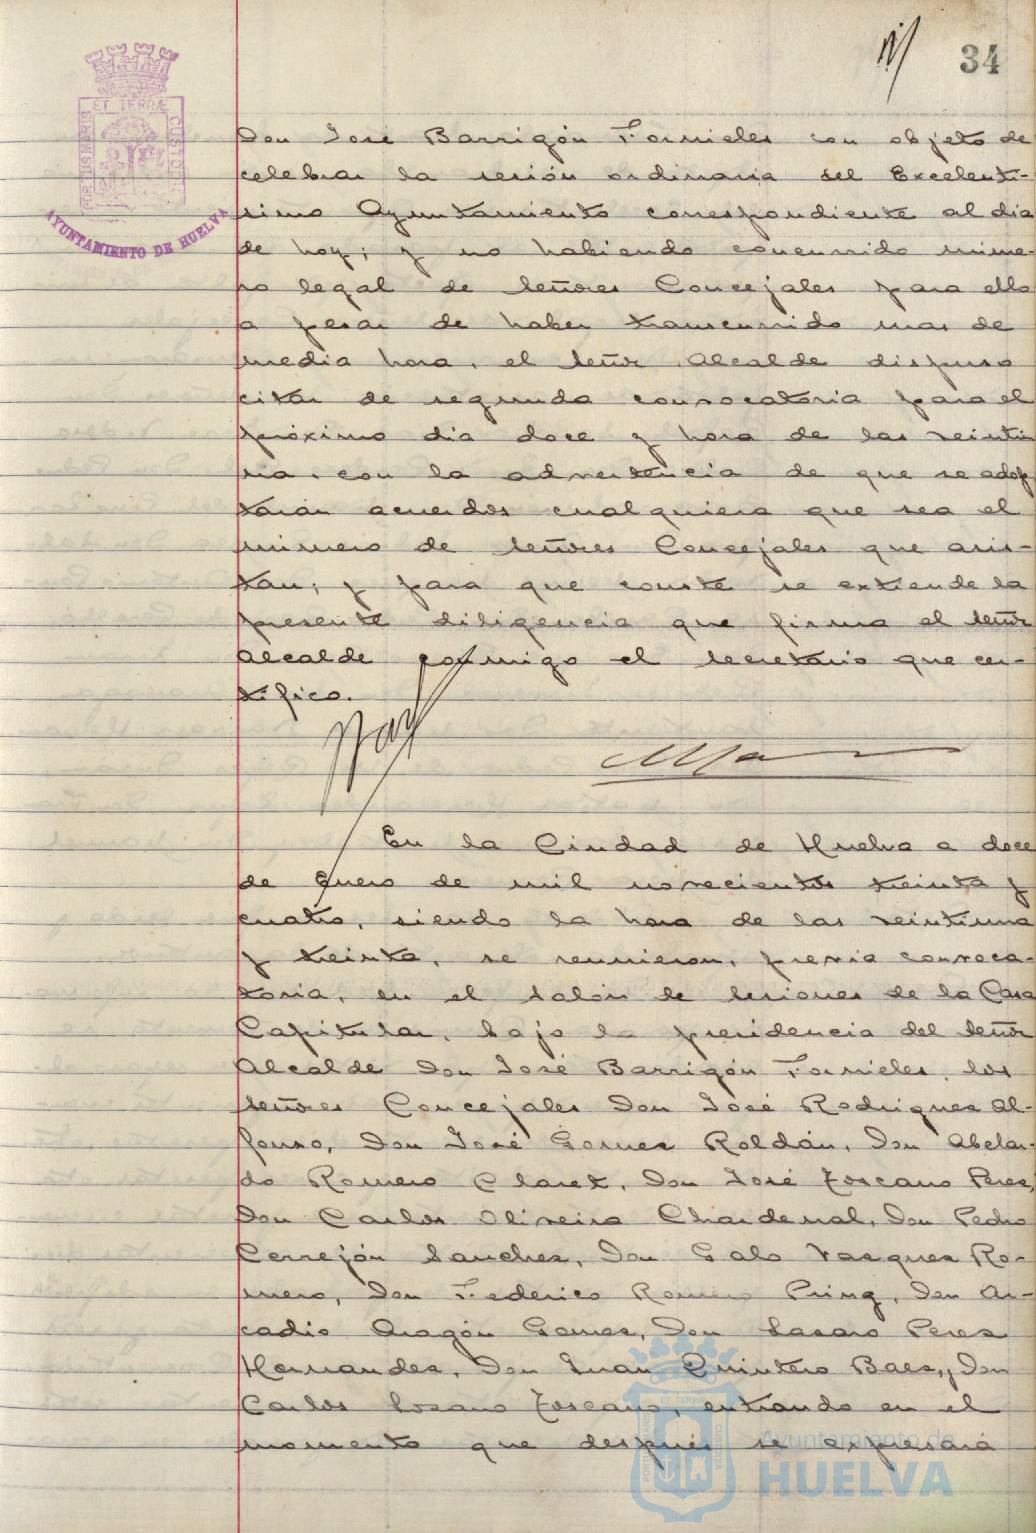 34
ET TERRÆ
PORTUS MARIS
CUSTODIA
AYUNTAMIENTO DE HUELVA
Don José Barrigón Fornieles con objeto de
celebrar la sesión ordinaria del Excelentí-
simo Ayuntamiento correspondiente al dia
de hoy; y no habiendo concurrido núme-
ro legal de señores Concejales para ello
a pesar de haber transcurrido mas de
media hora, el señor Alcalde dispuso
citar de segunda convocatoria para el
próximo dia doce y hora de las veinti
una, con la advertencia de que se adop
tarán acuerdos cualquiera que sea el
número de señores Concejales que asis-
tan; y para que conste se extiende la
presente diligencia que firma el señor
Alcalde conmigo el Secretario que cer-
tifico.
En la Ciudad de Huelva a doce
de Enero de mil novecientos treinta y
cuatro, siendo la hora de las veintiuna
y treinta, se reunieron, previa convoca-
toria, en el Salón de Sesiones de la Casa
Capitular, bajo la presidencia del señor
Alcalde Don José Barrigón Fornieles, los
señores Concejales Don José Rodriguez Al-
fonso, Don José Gomez Roldán, Don Abelar-
do Romero Claret, Don José Toscano Perez,
Don Carlos Oliveira Chardenal, Don Pedro
Cerrejón Sanchez, Don Galo Vazquez Ro-
mero, Don Federico Romero Pring, Don Ar-
cadio Aragón Gomez, Don Lazaro Perez
Hernandez, Don Juan Quintero Baez, y Don
Carlos Lozano Toscano, entrando en el
momento que después se expresará
Ayuntamiento de
HUELVA